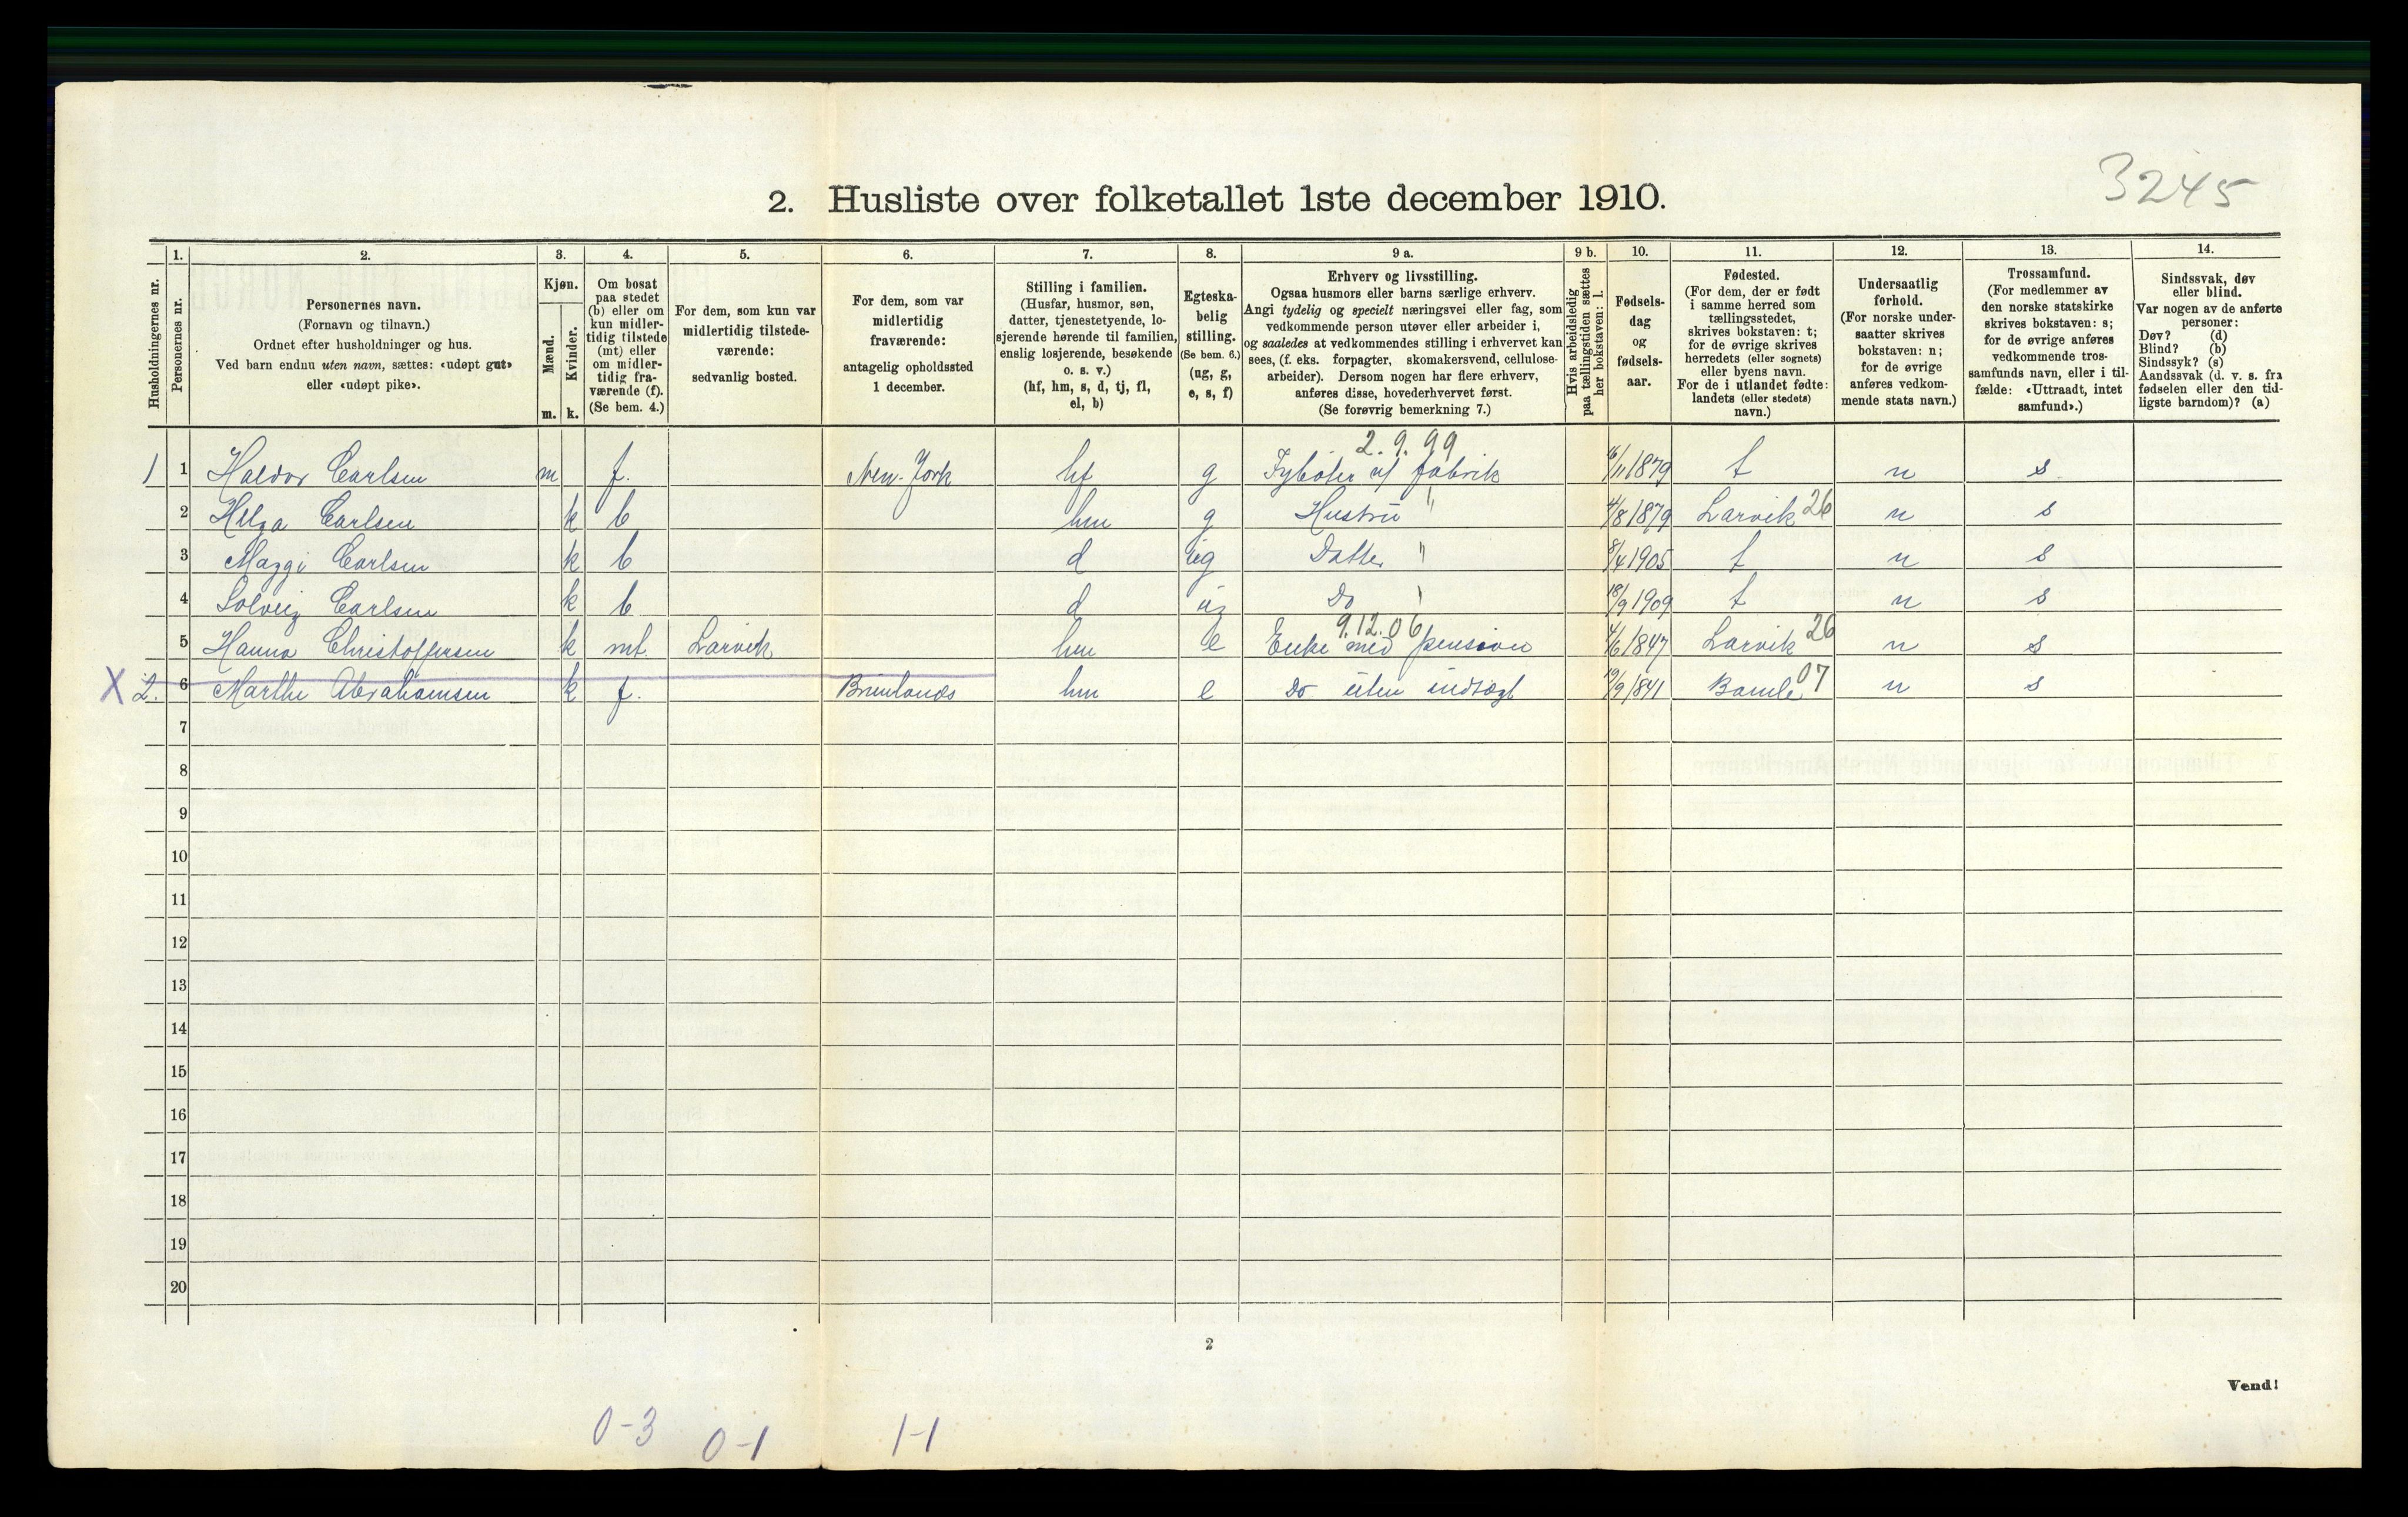 3245
2. Husliste over folketallet 1ste december 1910.
Husholdningernes nr.
1. Personernes nr.
2. Personernes navn. (Fornavn og tilnavn.) Ordnet efter husholdninger og hus. Ved barn endnu uten navn, sættes: «udøpt gut» eller «udøpt pike».
3. Kjøn. Mænd. m. Kvinder. k.
4. Om bosat paa stedet (b) eller om kun midlertidig tilstede (mt) eller om midlertidig fraværende (f). (Se bem. 4.)
5. For dem, som kun var midlertidig tilstedeværende: sedvanlig bosted.
6. For dem, som var midlertidig fraværende: antagelig opholdssted 1 december.
7. Stilling i familien. (Husfar, husmor, søn, datter, tjenestetyende, losjerende hørende til familien, enslig losjerende, besøkende o. s. v.) (hf, hm, s, d, tj, fl, el, b)
8. Egteskabelig stilling. (Se bem. 6.) (ug, g, e, s, f)
9 a. Erhverv og livsstilling. Ogsaa husmors eller barns særlige erhverv. Angi tydelig og specielt næringsvei eller fag, som vedkommende person utøver eller arbeider i, og saaledes at vedkommendes stilling i erhvervet kan sees, (f. eks. forpagter, skomakersvend, cellulosearbeider). Dersom nogen har flere erhverv, anføres disse, hovederhvervet først. (Se forøvrig bemerkning 7.)
9 b. Hvis arbeidsledig paa tællingstiden sættes her bokstaven: l.
10. Fødselsdag og fødselsaar.
11. Fødested. (For dem, der er født i samme herred som tællingsstedet, skrives bokstaven: t; for de øvrige skrives herredets (eller sognets) eller byens navn. For de i utlandet fødte: landets (eller stedets) navn.)
12. Undersaatlig forhold. (For norske undersaatter skrives bokstaven: n; for de øvrige anføres vedkommende stats navn.)
13. Trossamfund. (For medlemmer av den norske statskirke skrives bokstaven: s; for de øvrige anføres vedkommende trossamfunds navn, eller i tilfælde: «Uttraadt, intet samfund».)
14. Sindssvak, døv eller blind. Var nogen av de anførte personer: Døv? (d) Blind? (b) Sindssyk? (s) Aandssvak (d. v. s. fra fødselen eller den tidligste barndom)? (a)
2.9.99
1 1 Haldor Carlsen m f. New-York hf g fabrik 1879 t n s
2 Helga Carlsen k b hm g Hustru " 4/8 1879 Larvik 26 n s
3 Maggi Carlsen k b d ug Datter " 8/4 1905 t n s
4 Solveig Carlsen k b d ug Do " 18/9 1909 t n s
9.12.06
5 Hanna Christoffersen k mt. Larvik hm e Enke med pension 4/6 1847 Larvik 26 n s
X 2. 6 Marthe Abrahamsen k f. Brunlanæs hm e Do uten indtægt 19/9 1841 Bamle 07 n s
7
8
9
10
11
12
13
14
15
16
17
18
19
20
2
Vend!
0-3 0-1 1-1